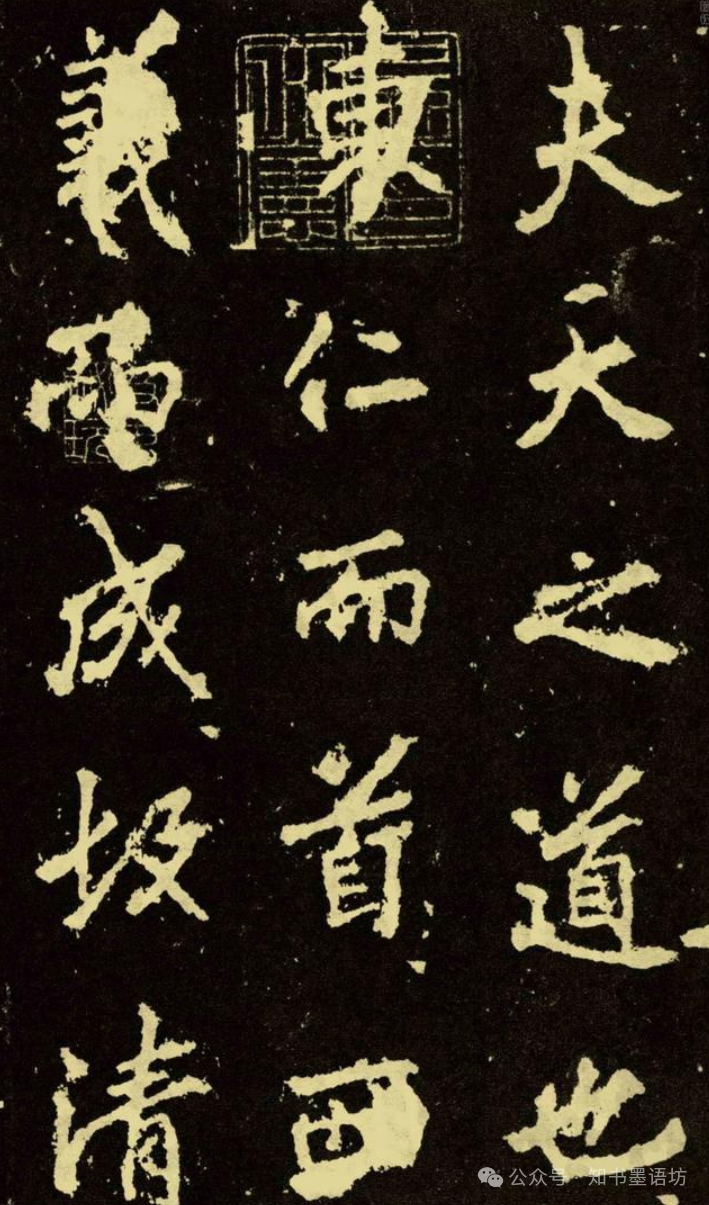 夫天之道也
東仁而首西
義而成故清
公众号 · 知书墨语坊